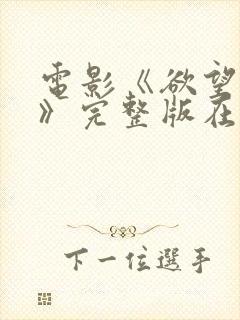 電影《欲望
》完整版在
下一位選手